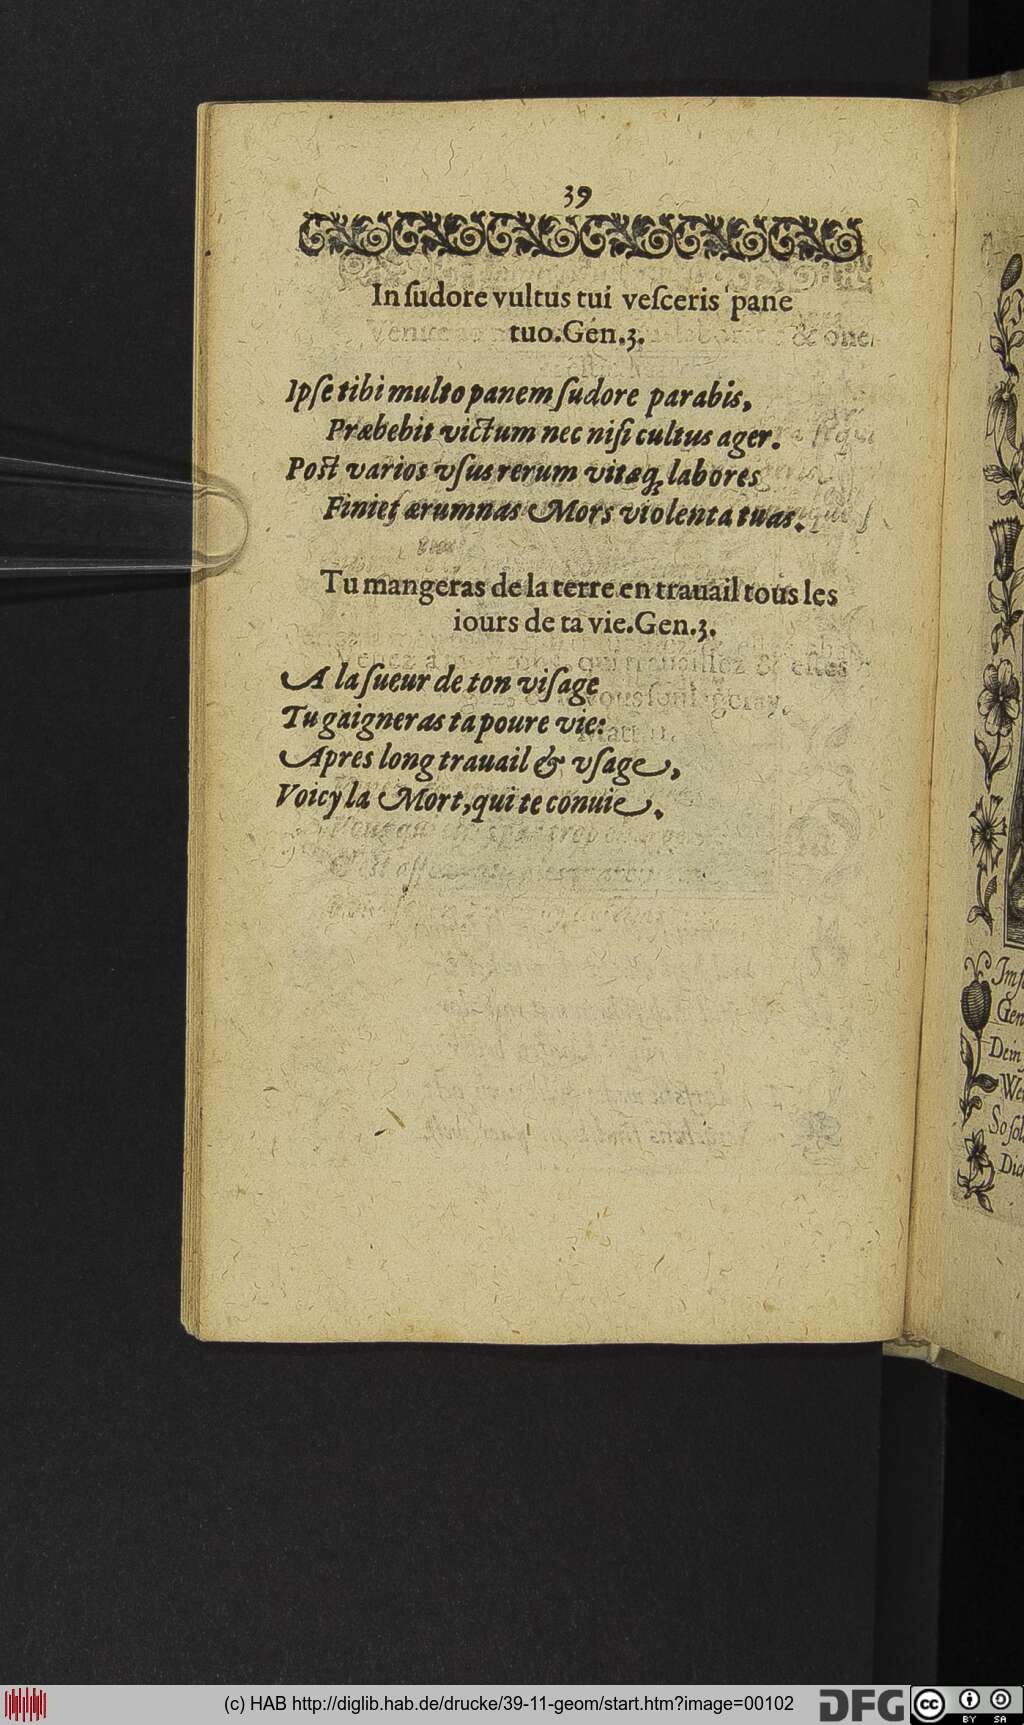 39
In ſudore vultus tui veſceris pane
tuo. Gen. 3.
Ipſe tibi multo panem ſudore parabis,
Præbebit victum nec niſi cultus ager.
Poſt varios vſus rerum vitæq; labores
Finiet ærumnas Mors violenta tuas.
Tu mangeras de la terre en trauail tous les
iours de ta vie. Gen. 3.
A la ſueur de ton viſage
Tu gaigneras ta poure vie:
Apres long trauail & vſage,
Voicy la Mort, qui te conuie.
Dein
(c) HAB http://diglib.hab.de/drucke/39-11-geom/start.htm?image=00102
DFG
cc
BY SA